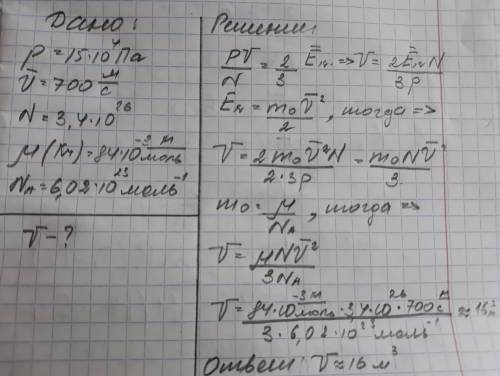 Дано:
p = 15·10⁴ Па
v̅ = 700 м/с
N = 3,4·10²⁶
μ(Kr) = 84·10⁻³ м/моль
Nₐ = 6,02·10²³ моль⁻¹
V - ?
Решение:
pV/N = 2/3 E̅к. => V = 2E̅кN/3p
E̅к = m₀v̅²/2, тогда =>
V = 2m₀v̅²N/2·3p = m₀Nv̅²/3
m₀ = μ/Nₐ, тогда =>
V = μNv̅²/3Nₐ
V = 84·10⁻³ м/моль · 3,4·10²⁶ · 700 м/с / 3·6,02·10²³ моль⁻¹ ≈ 16 м³
Ответ: V ≈ 16 м³